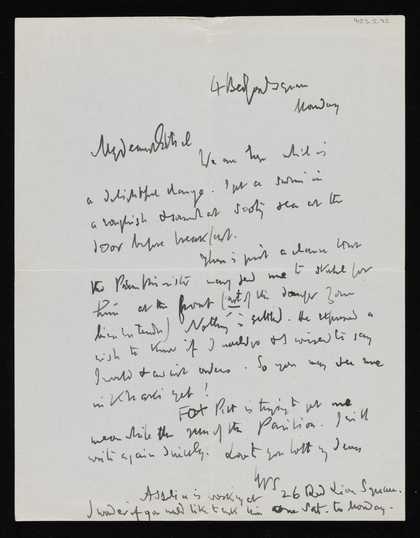 4 Bedford Square
Monday
My dearest Ethel
We are here which is
a delightful change. I get a swim in
a roughish & somewhat sooty sea at the
door before breakfast.
There is just a chance that
the Prime Minister may send me to sketch for
him at the front (out of the danger zone
) Nothing is settled. He expressed a
wish to know if I would go & I wired to say
I would & await orders. So you may see me
in Khaki yet!
FOX Pitt is trying to get me
meanwhile the run of the Pavilion. I will
write again quickly. Don't you my dear
WS
is working at 26 Red Lion Square.
I wonder if you would like to ask him one Sat. to Monday.